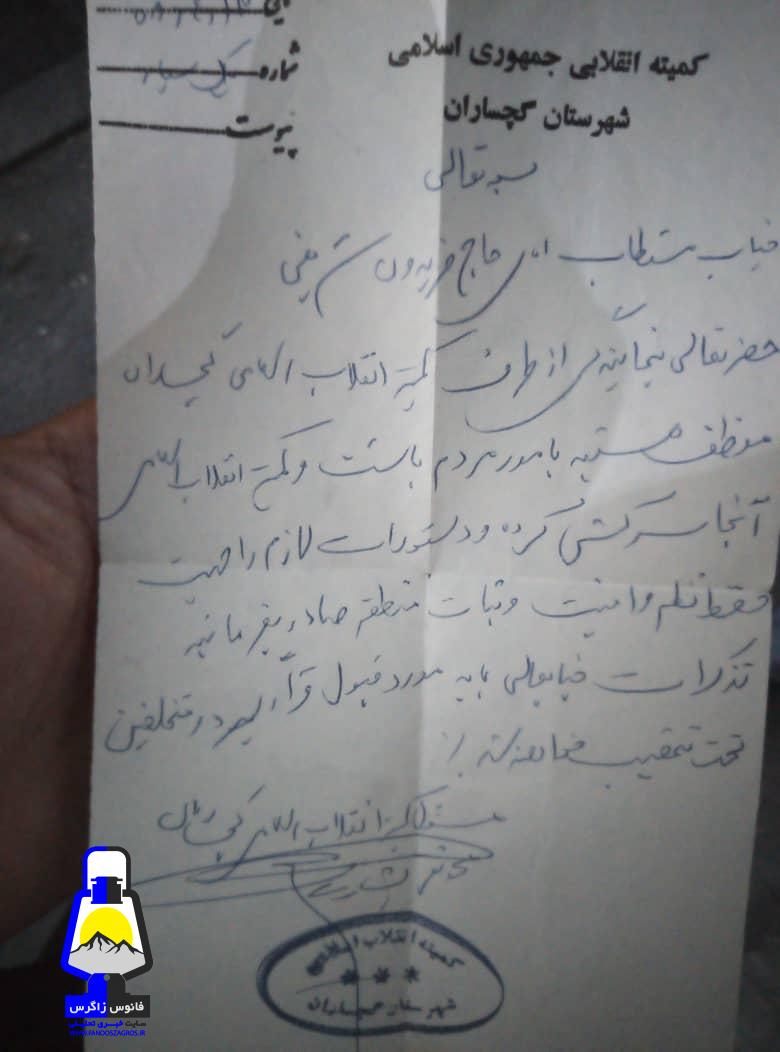 شماره
پیوست
کمیته انقلابی جمهوری اسلامی
شهرستان گچساران
بسمه تعالی
جناب مستطاب آقای حاج فریدون
حضرتعالی بنمایندگی از طرف کمیته انقلاب اسلامی گچساران
موظف هستید بامور مردم باشت و کمیته انقلاب اسلامی
آنجا سرکشی کرده و دستورات لازم را جهت
حفظ نظم و امنیت و ثبات منطقه صادر بفرمائید
تذکرات جنابعالی باید مورد قبول قرار گیرد متخلفین
تحت تعقیب
کمیته انقلاب اسلامی گچساران
کمیته انقلاب اسلامی
شهرستان گچساران
فانوس زاگرس
سایت خبری تحلیلی
WWW.FANOOSZAGROS.IR